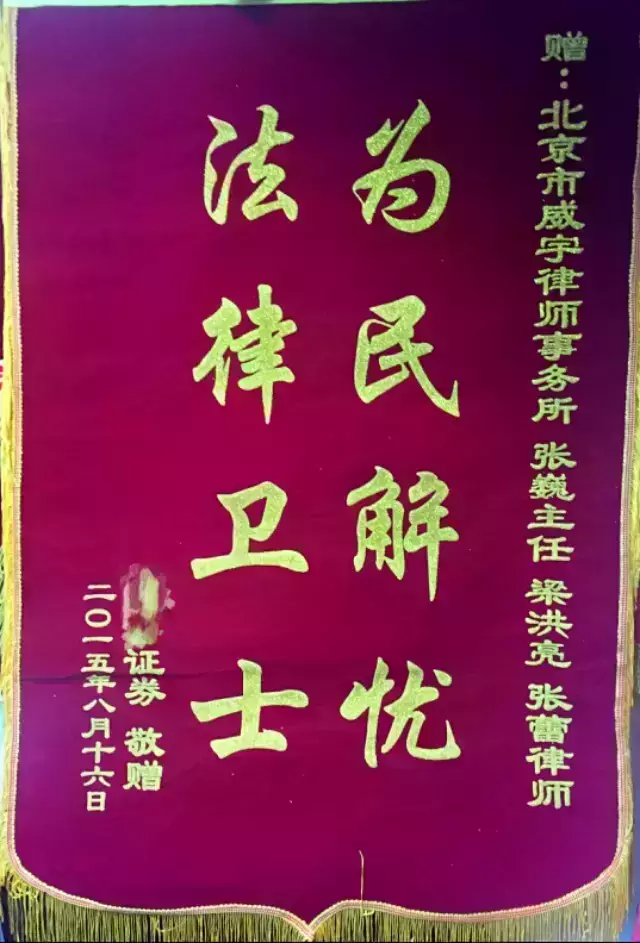 赠：北京市威宇律师事务所 张巍主任 梁洪亮 张蕾律师
为民解忧
法律卫士
证券 敬赠
二〇一五年八月十六日